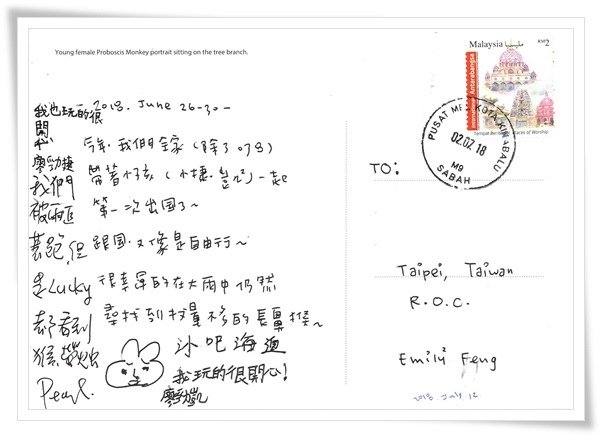 Young female Proboscis Monkey portrait sitting on the tree branch.
Malaysia
RM2
International Antarabangsa
Places of Worship
PUSAT MEL KOTA KINABALU
02.07.18
M9
SABAH
我也玩的很
開
心
廖勁捷
我們
被雨追
著跑,但
是Lucky
都看到
猴,螢火蟲
Pearl.
2018. June 26-30-
今年我們全家(除了
帶著小孩(小捷.
)一起
第一次出國了~
跟團.又像是自由行~
很幸運的在大雨中仍然
尋找到數量不多的長鼻猴~
沙吧海
我玩的很開心!
廖勁凱
TO:
Taipei, Taiwan
R.O.C.
Emily Feng
2018. July. 12